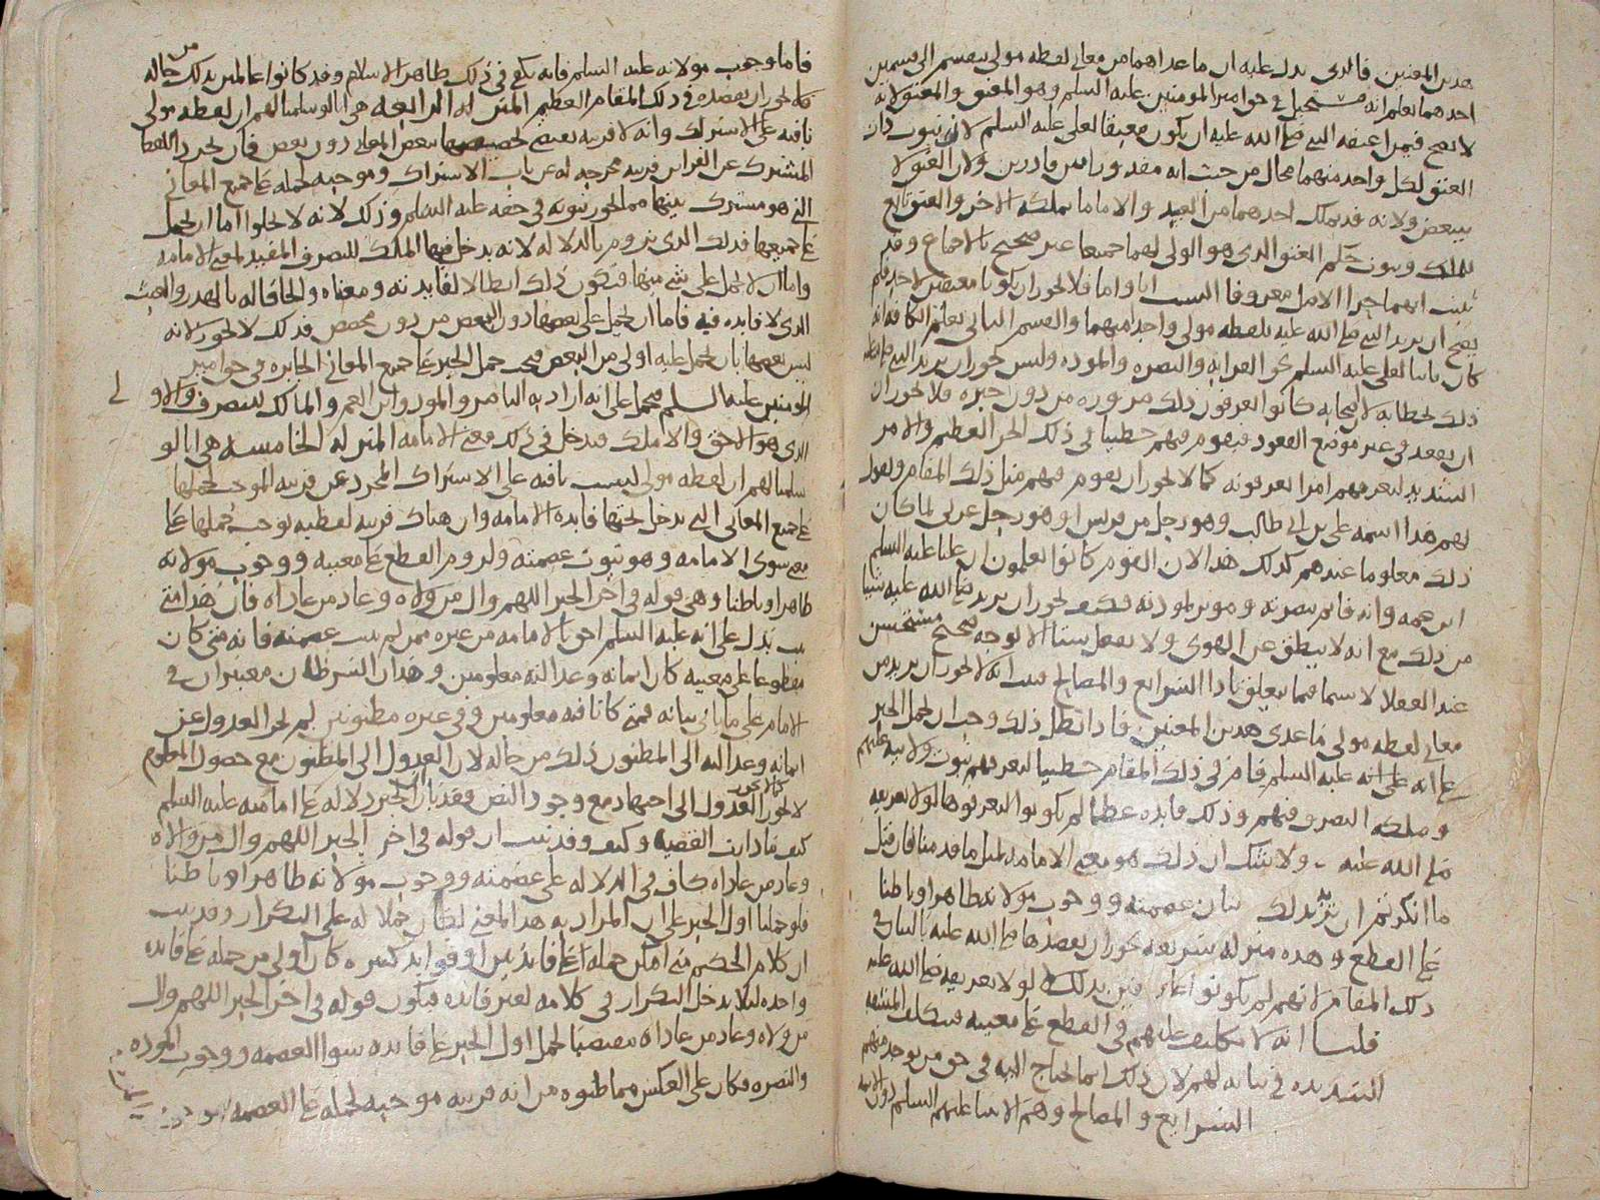 هذين المعنيين فالذي يدل عليه ان ما عداهما من معاني لفظه مولى ينقسم الى قسمين
احدهما يعلم انه مستحيل في حق امير المؤمنين عليه السلم وهو المعتق والمعتق لانه
لا يصح فيمن اعتقه النبي صلى الله عليه ان يكون معتيقا لعلي عليه السلم لان ثبوت
العتق لكل واحد منهما محال من حيث انه مقدور بين قادرين ولان العتق لا
يتبعض ولانه قد يملك احدهما من العبد والاما ما يملكه الاخر والعتق تابع
للملك وثبوت حكم العتق الذي هو الولي لهما جميعا غير صحيح بالاجماع وقد
يصح ان يريد النبي صلى الله عليه بلفظه مولى واحدا منهما والقسم الثاني يعلم الكافه انه
كان ثابتا لعلي عليه السلم نحو القرابه والنصره والموده وليس يجوز ان يريد النبي صلى الله عليه
ذلك بخطابه لان الصحابه كانوا يعرفون ذلك من دون خبره فلا يجوز ان
ان يقعد في غير موضع القعود فيقوم فيهم خطيبا في ذلك الحر العظيم والامر
الشديد ليعرفهم امرا يعرفونه كما لا يجوز ان يقوم فيهم مثل ذلك المقام ويقول
لهم هذا اسمه علي بن ابي طالب وهو رجل من قريش او هو رجل عربي لما كان
ذلك معلوما عندهم كذلك هذا لان القوم كانوا يعلمون ان عليا عليه السلم
ابن عمه وانه قائم بنصرته فكيف يجوز ان يريد صلى الله عليه شيئا
من ذلك مع انه لا ينطق عن الهوى ولا يفعل شيئا الا لوجه صحيح مستحسن
عند العقلا لا سيما فيما يتعلق باداء الشرايع والمصالح فثبت انه لا يجوز ان يريد من
معاني لفظه مولى ما عدى هذين المعنيين فاذا بطل ذلك وجب ان يحمل الخبر
على انه عليه السلم قام في ذلك المقام خطيبا ليعرفهم ثبوت ولايته عليهم
وملكه التصرف فيهم وذلك فايده عظيمة لم يكونوا ليعرفوها لولا تعريفه
صلى الله عليه ولا شك ان ذلك هو معنى الامامه لمثل ما قدمنا فان قيل
ما انكرتم ان يريد بذلك بيان عصمته ووجوب موالاته ظاهرا وباطنا
على القطع وهذه منزله شريفه يجوز ان يقصدها صلى الله عليه بالبيان في
ذلك المقام لانهم لم يكونوا بذلك لولا تعريفه صلى الله عليه
قلنا انه لا تكليف عليهم في القطع على معينه فتكلف المشقه
الشديده في بيانه لهم لان ذلك انما يحتاج اليه في حق من يوخذ منهم
الشرايع والمصالح وهم الانبيا عليهم السلم دون الايمه
فاما وجوب موالاته عليه السلم فانه يكفي في ذلك ظاهر الاسلام وقد كانوا عالمين بذلك من حاله
فلا يجوز ان يقصده في ذلك المقام العظيم المنزله الرابعه هي انا لو سلمنا لهم ان لفظه مولى
باقيه على الاشتراك وانه لا قرينه تقتضي تخصيصها ببعض المعاني دون بعض فان تجرد اللفظ
المشترك عن القراين قرينه مخرجه له عن باب الاشتراك وموجبه لحمله على جميع المعاني
التي هو مشترك بينها مما يجوز ثبوته في حقه عليه السلم وذلك لانه لا يخلوا اما ان يحمل
على جميعها فذلك الذي نروم بالدلاله لانه يدخل فيها الملك للتصرف المفيد لمعنى الامامه
واما ان لا يحمل على شي منها فيكون ذلك ابطالا لفايدته ومعناه والحاقا له بالهذر والعبث
الذي لا فايده فيه فاما ان يحمل على بعضها دون البعض من دون مخصص فذلك لا يجوز لانه
ليس بعضها بان يحمل عليه اولى من البعض فيجب حمل الخبر على جميع المعاني الجايزه في حق امير
المومنين عليه السلم فيحمل على انه اراد به الناصر والمواد وابن العم والمالك للتصرف والاولى
الذي هو الاحق والاملك فيدخل في ذلك معنى الامامه المنزله الخامسه هي انا لو
سلمنا لهم ان لفظه مولى ليست باقيه على الاشتراك المجرد عن قرينه الموجب لحملها
على جميع المعاني التي يدخل تحتها فايده الامامه وان هناك قرينه لفظيه توجب حملها على
معنى سوى الامامه وهو ثبوت عصمته ولزوم القطع على معينه ووجوب موالاته
ظاهرا وباطنا وهي قوله في اخر الخبر اللهم وال من والاه وعاد من عاداه فان هذا متى
ثبت يدل على انه عليه السلم احق بالامامه من غيره ممن لم تثبت عصمته فانه متى كان
مقطوعا على معينه كان ايمانه وعدالته معلومين وهذان الشرطان معتبران في
الامام على ما ياتي بيانه فمتى كانا فيه معلومين وفي غيره مظنونين لم يجز العدول عن
ايمانه وعدالته الى المظنون ذلك من حاله لان العدول الى المظنون مع حصول المعلوم
لا يجوز كما لا يجوز العدول الى اجتهاد مع وجود النص فقد بان ان الخبر دلاله على امامته عليه السلم
كيف ما دارت القضيه وكيف وقد ثبت ان قوله في اخر الخبر اللهم وال من والاه
وعاد من عاداه كاف في الدلاله على عصمته ووجوب موالاته ظاهرا وباطنا
فلو حملنا اول الخبر على ان المراد به هذا المعنى لكان حملا له على التكرار وقد ثبت
ان كلام الحكيم متى امكن حمله على فايدتين او فوايد كثيره كان اولى من حمله على فايده
واحده ليلا يدخل التكرار في كلامه لغير فايده فيكون قوله في اخر الخبر اللهم وال
من والاه وعاد من عاداه مقتضيا لحمل اول الخبر على فايده سوا العصمه ووجوب الموده
والنصره فكان على العكس مما ظنوه من انه قرينه موجبه لحمله على العصمه